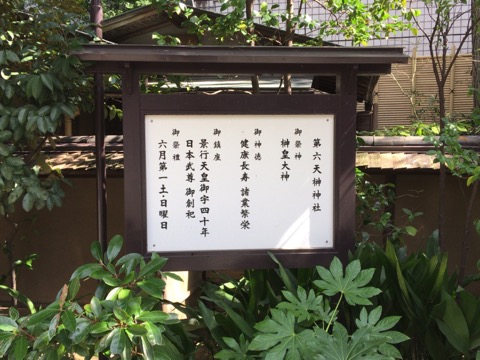 第六天榊神社
御祭神
榊皇大神
御神徳
健康長寿 諸業繁栄
御鎮座
景行天皇御宇四十年
日本武尊 御創祀
御祭禮
六月第一土・日曜日